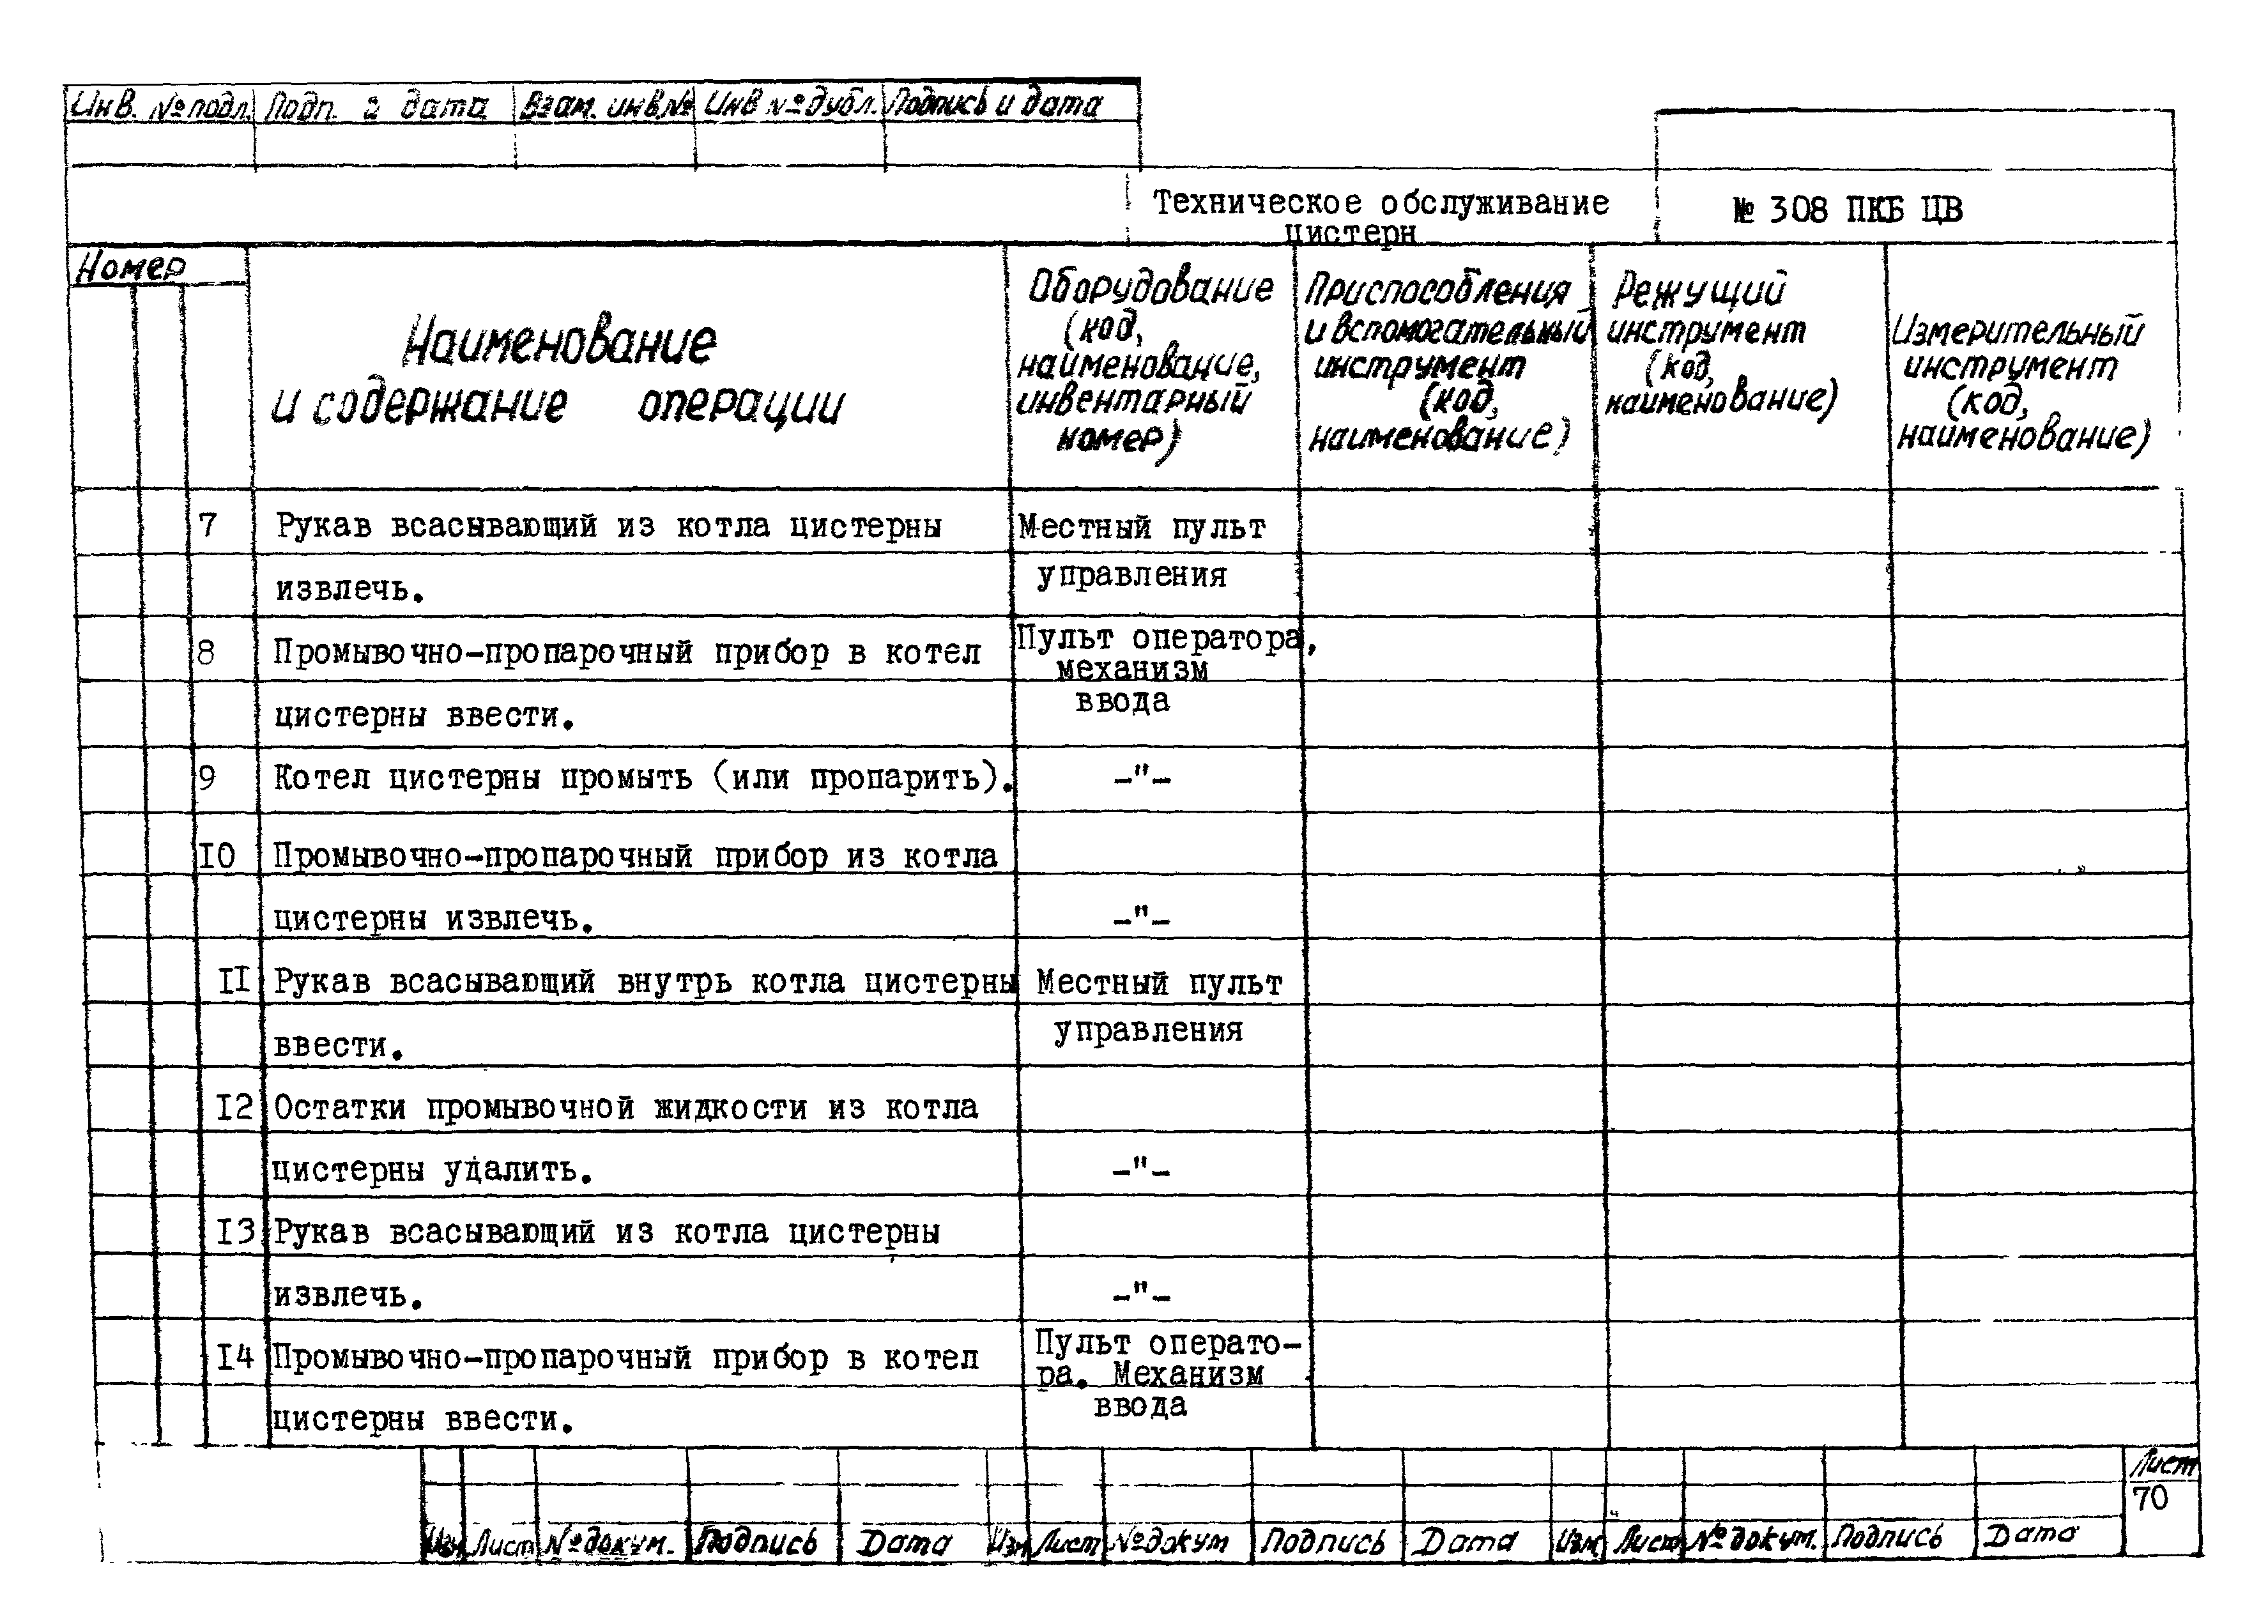 Инв. № подл. Подп. и дата Взам. инв. № Инв № дубл. Подпись и дата
Техническое обслуживание
цистерн
№ 308 ПКБ ЦВ
Номер
Наименование
и содержание операции
Оборудование
(код,
наименование,
инвентарный
номер)
Приспособления
и вспомогательный
инструмент
(код,
наименование)
Режущий
инструмент
(код,
наименование)
Измерительный
инструмент
(код,
наименование)
7 Рукав всасывающий из котла цистерны Местный пульт
извлечь. управления
8 Промывочно-пропарочный прибор в котел Пульт оператора,
механизм
цистерны ввести. ввода
9 Котел цистерны промыть (или пропарить). –"–
I0 Промывочно-пропарочный прибор из котла
цистерны извлечь. –"–
II Рукав всасывающий внутрь котла цистерны Местный пульт
ввести. управления
I2 Остатки промывочной жидкости из котла
цистерны удалить. –"–
I3 Рукав всасывающий из котла цистерны
извлечь. –"–
I4 Промывочно-пропарочный прибор в котел Пульт операто-
ра. Механизм
цистерны ввести. ввода
Лист
70
Изм Лист № докум. Подпись Дата Изм Лист № докум Подпись Дата Изм Лист № докум. Подпись Дата